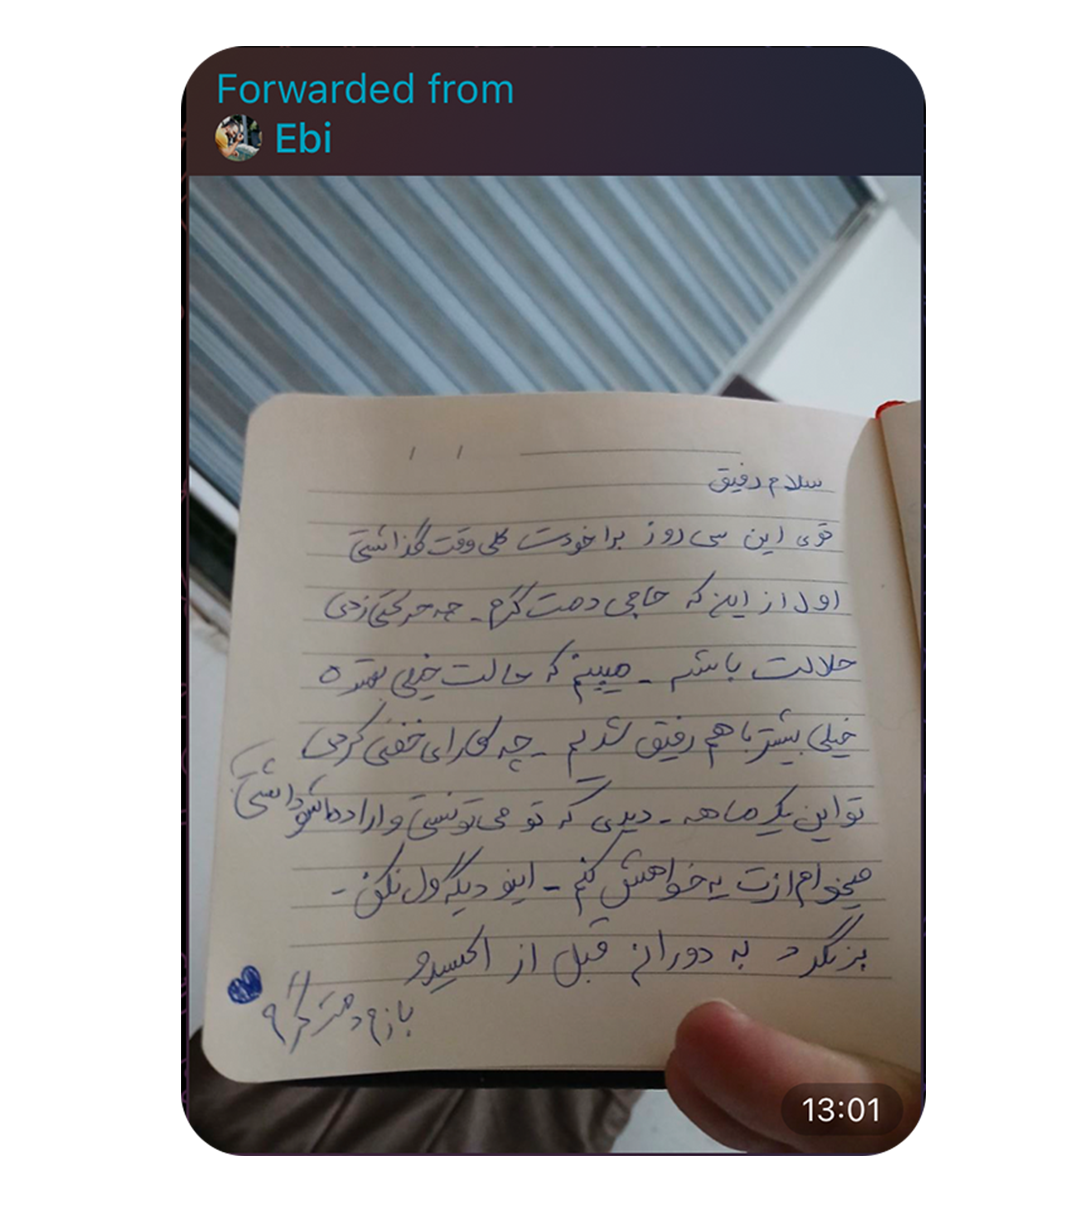 Forwarded from
Ebi
سلام رفیق
توی این سی روز برا خودت کلی وقت گذاشتی
اول از این که حاجی دمت گرم - چه حرکتی زدی
حلالت باشه - میبینم که حالت خیلی بهتره
خیلی بیشتر با هم رفیق شدیم - چه کارای خفنی کردی
تو این یک ماهه - دیدی که تو می تونستی و اراده اشو داشتی
میخوام ازت یه خواهش کنم - اینو دیگه ول نکن -
برنگرد به دوران قبل از اکسیدو
بازم دمت گرم
13:01